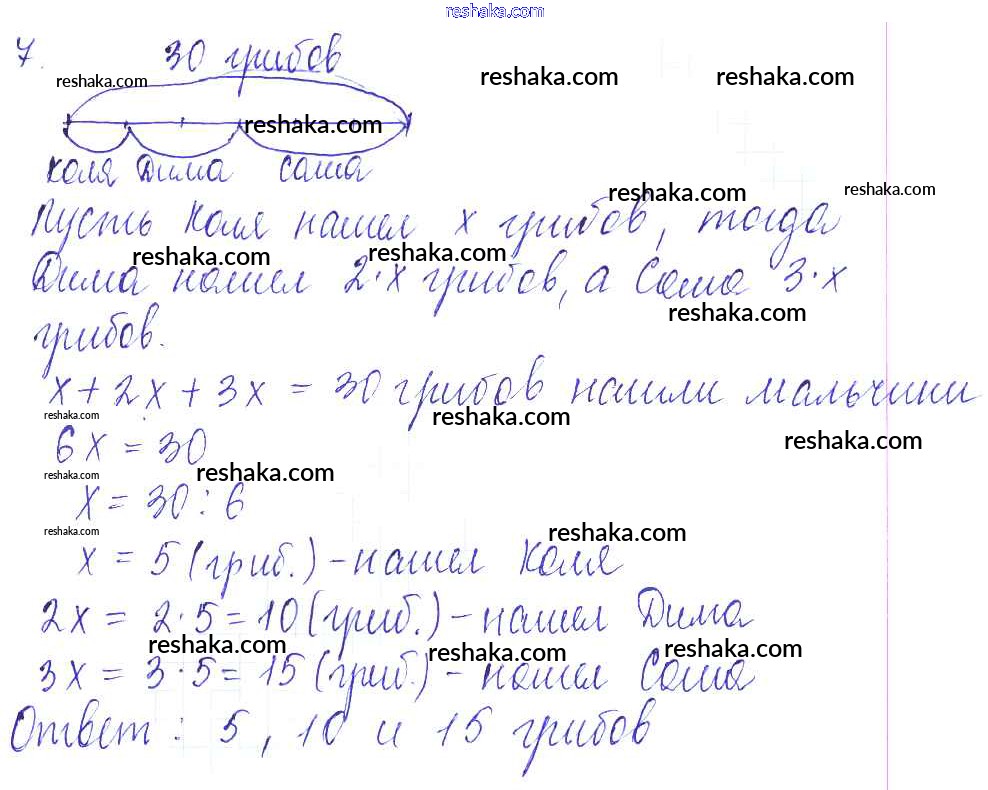 reshaka.com
7. 30 грибов
reshaka.com reshaka.com reshaka.com
reshaka.com
Коля Дима Саша
reshaka.com reshaka.com
Пусть Коля нашел x грибов, тогда
reshaka.com reshaka.com
Дима нашел 2·x грибов, а Саша 3·x
reshaka.com
грибов.
x + 2x + 3x = 30 грибов нашли мальчики
reshaka.com reshaka.com
6x = 30
reshaka.com
reshaka.com reshaka.com
x = 30 : 6
reshaka.com reshaka.com
x = 5 (гриб.) – нашел Коля
2x = 2·5 = 10 (гриб.) – нашел Дима
reshaka.com reshaka.com reshaka.com
3x = 3·5 = 15 (гриб.) – нашел Саша
Ответ: 5, 10 и 15 грибов